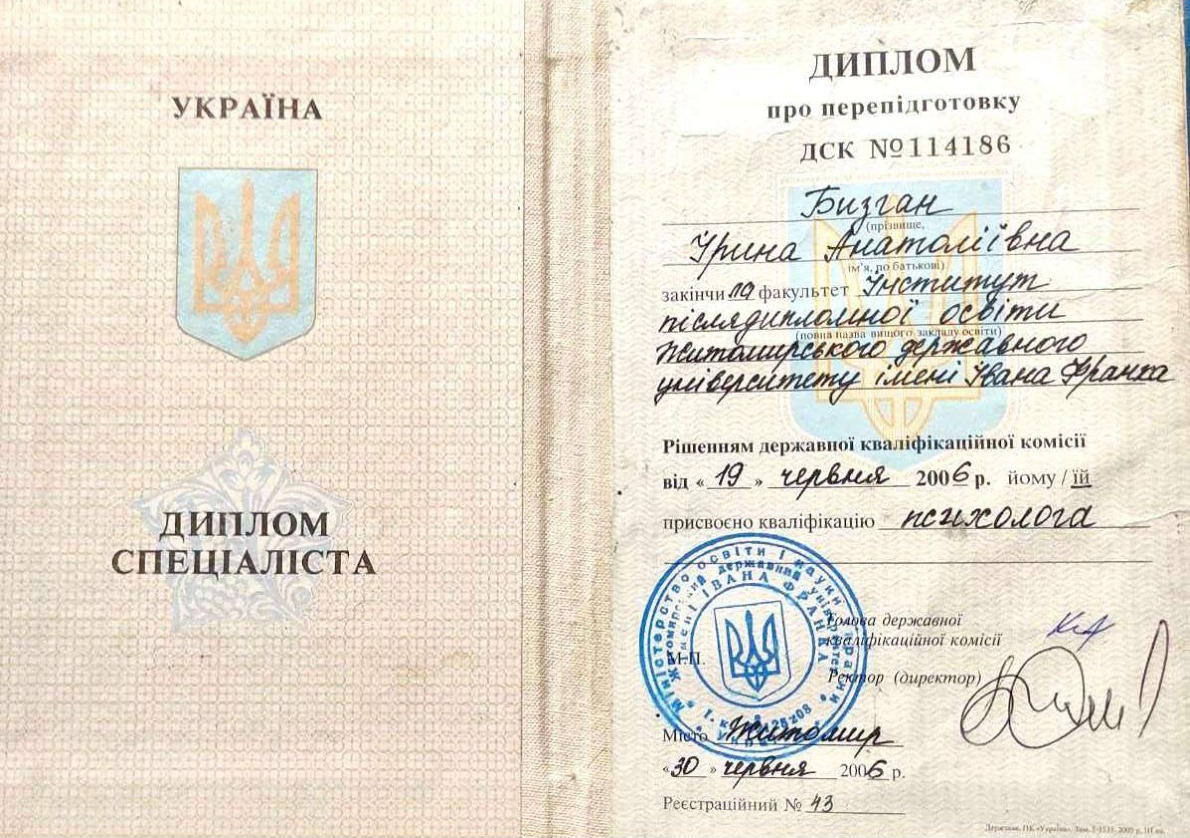 УКРАЇНА
ДИПЛОМ
СПЕЦІАЛІСТА
ДИПЛОМ
про перепідготовку
ДСК №114186
Бизган
(прізвище,
Ірина Анатоліївна
ім'я, по батькові)
закінчила факультет Інститут
післядипломної освіти
(повна назва вищого закладу освіти)
Житомирського державного
університету імені Івана Франка
Рішенням державної кваліфікаційної комісії
від «19» червня 2006 р. йому / їй
присвоєно кваліфікацію психолога
Міністерство освіти і науки України
Житомирський державний університет
імені ІВАНА ФРАНКА
Голова державної
кваліфікаційної комісії
М.П.
Ректор (директор)
Місто Житомир
«30» червня 2006 р.
Реєстраційний № 43